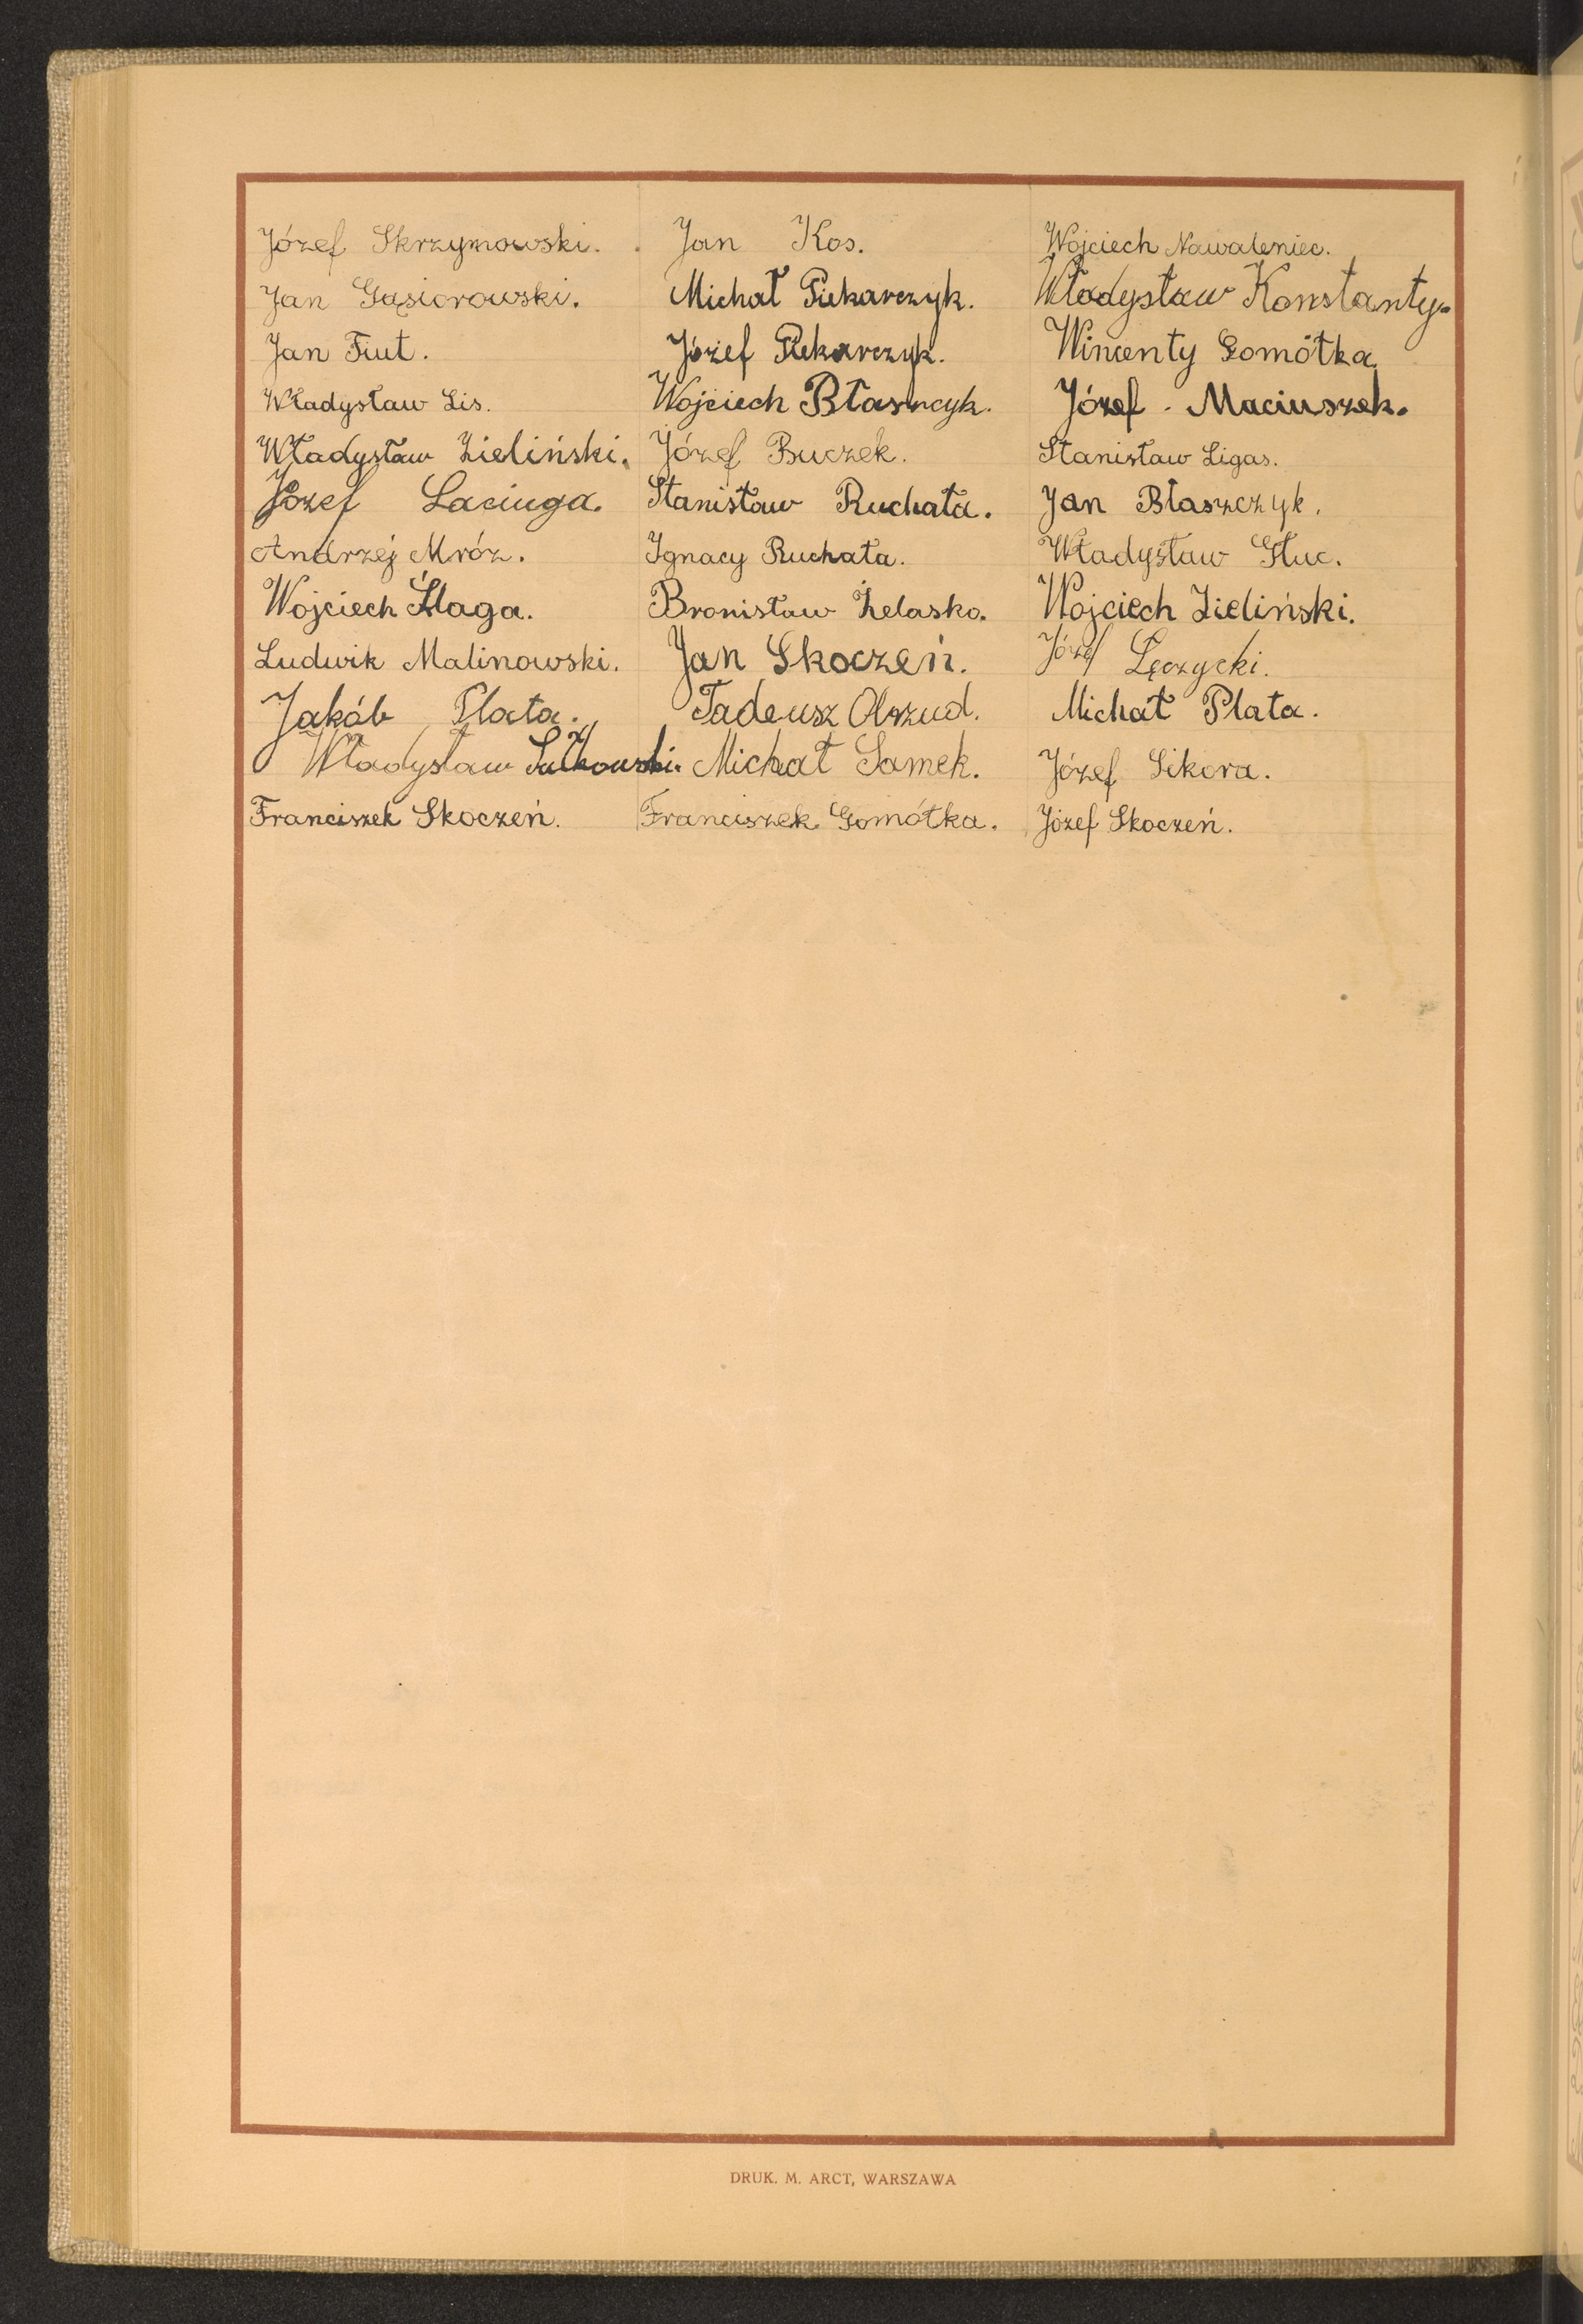 Józef Skrzymowski.
Jan Gąsiorowski.
Jan Fiut.
Władysław Lis.
Władysław Zieliński.
Józef Laciuga.
Andrzej Mróz.
Wojciech Ślaga.
Ludwik Malinowski.
Jakób Plata.
Władysław Sułkowski.
Franciszek Skoczeń.
Jan Kos.
Michał Piekarczyk.
Józef Piekarczyk.
Wojciech
Józef Buczek.
Stanisław Ruchała.
Ignacy Ruchała.
Bronisław Żelasko.
Jan Skoczeń.
Tadeusz
Michał Samek.
Franciszek Gomółka.
Wojciech Nawaleniec.
Władysław Konstanty.
Wincenty Gomółka.
Józef Maciuszek.
Stanisław Ligas.
Jan Błaszczyk.
Władysław Głuc.
Wojciech Zieliński.
Józef Łęczycki.
Michał Plata.
Józef Sikora.
Józef Skoczeń.
DRUK. M. ARCT, WARSZAWA